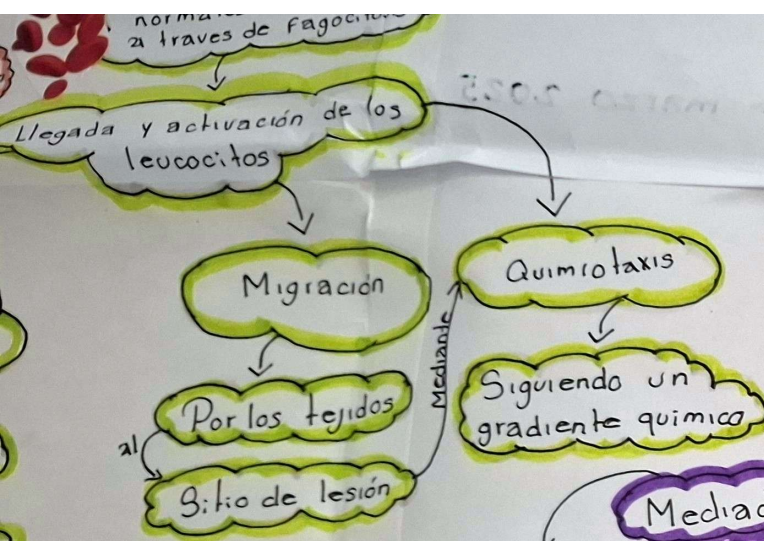 a traves de Fagoci
Llegada y activación de los
leucocitos
Migración
Quimiotaxis
Por los tejidos
Mediante
Siguiendo un
gradiente quimico
al
Sitio de lesión
marzo 2025